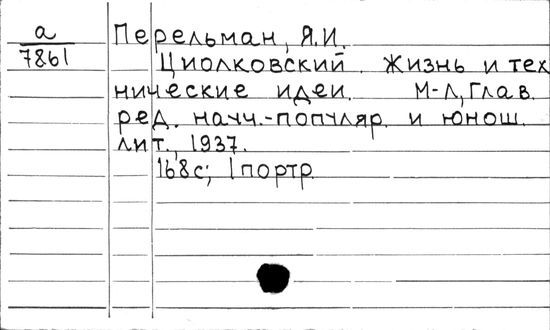 а
7861
Перельман, Я.И.
Циолковский. Жизнь и тех
нические идеи. М-Л, Глав.
ред. научн.-популяр. и юнош.
лит., 1937.
168с; 1 портр.